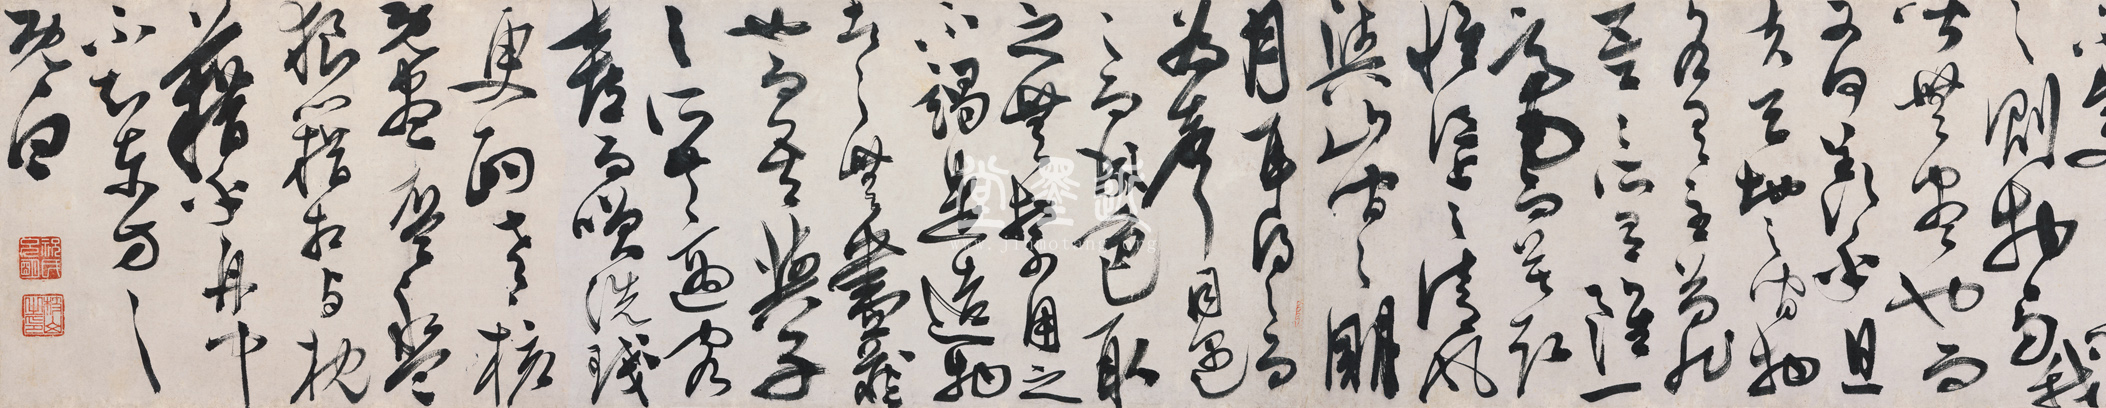 之則物與我
皆無盡也而
又何羨乎且
夫天地之間物
各有主苟非
吾之所有雖一
毫而莫取
惟江上之清風
與山間之明
月耳得之而
為聲目遇
之而成色取
之無禁用之
不竭是造物
者之無盡藏
也而吾與子
之所共適客
喜而笑洗盞
更酌肴核
既盡杯盤
狼籍相与枕
藉乎舟中
不知東方之
既白
www.jinmotang.org